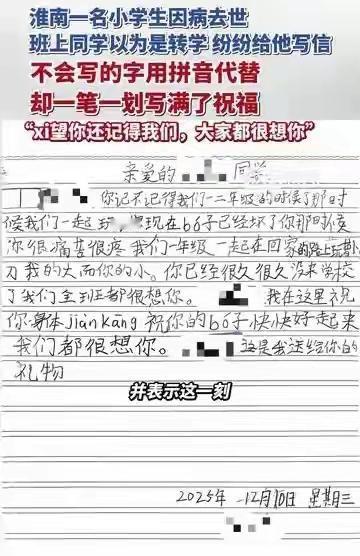 淮南一名小学生因病去世
班上同学以为是转学 纷纷给他写信
不会写的字用拼音代替
却一笔一划写满了祝福
“xi望你还记得我们，大家都很想你”
亲爱的 同学
你记不记得我们一二年级的时候了那时
候我们一起玩, 现在b6子已经坏了你那时候
你很痛苦很疼我们一年级一起在回家的路上玩
刀我的大而你的小。你已经很久很久没来学校
了我们全班都很想你。 我在这里祝
你身体jiànkāng祝你的b6子快快好起来
我们都很想你。 这是我送给你的
礼物
并表示这一刻
2025年 12月10日 星期三